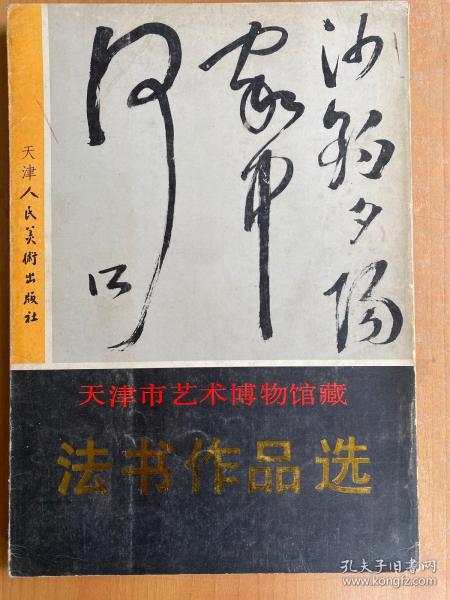 沙 夕陽
天津人民美術出版社
天津市艺术博物馆藏
法书作品选
孔夫子旧书网
www.kongfz.com